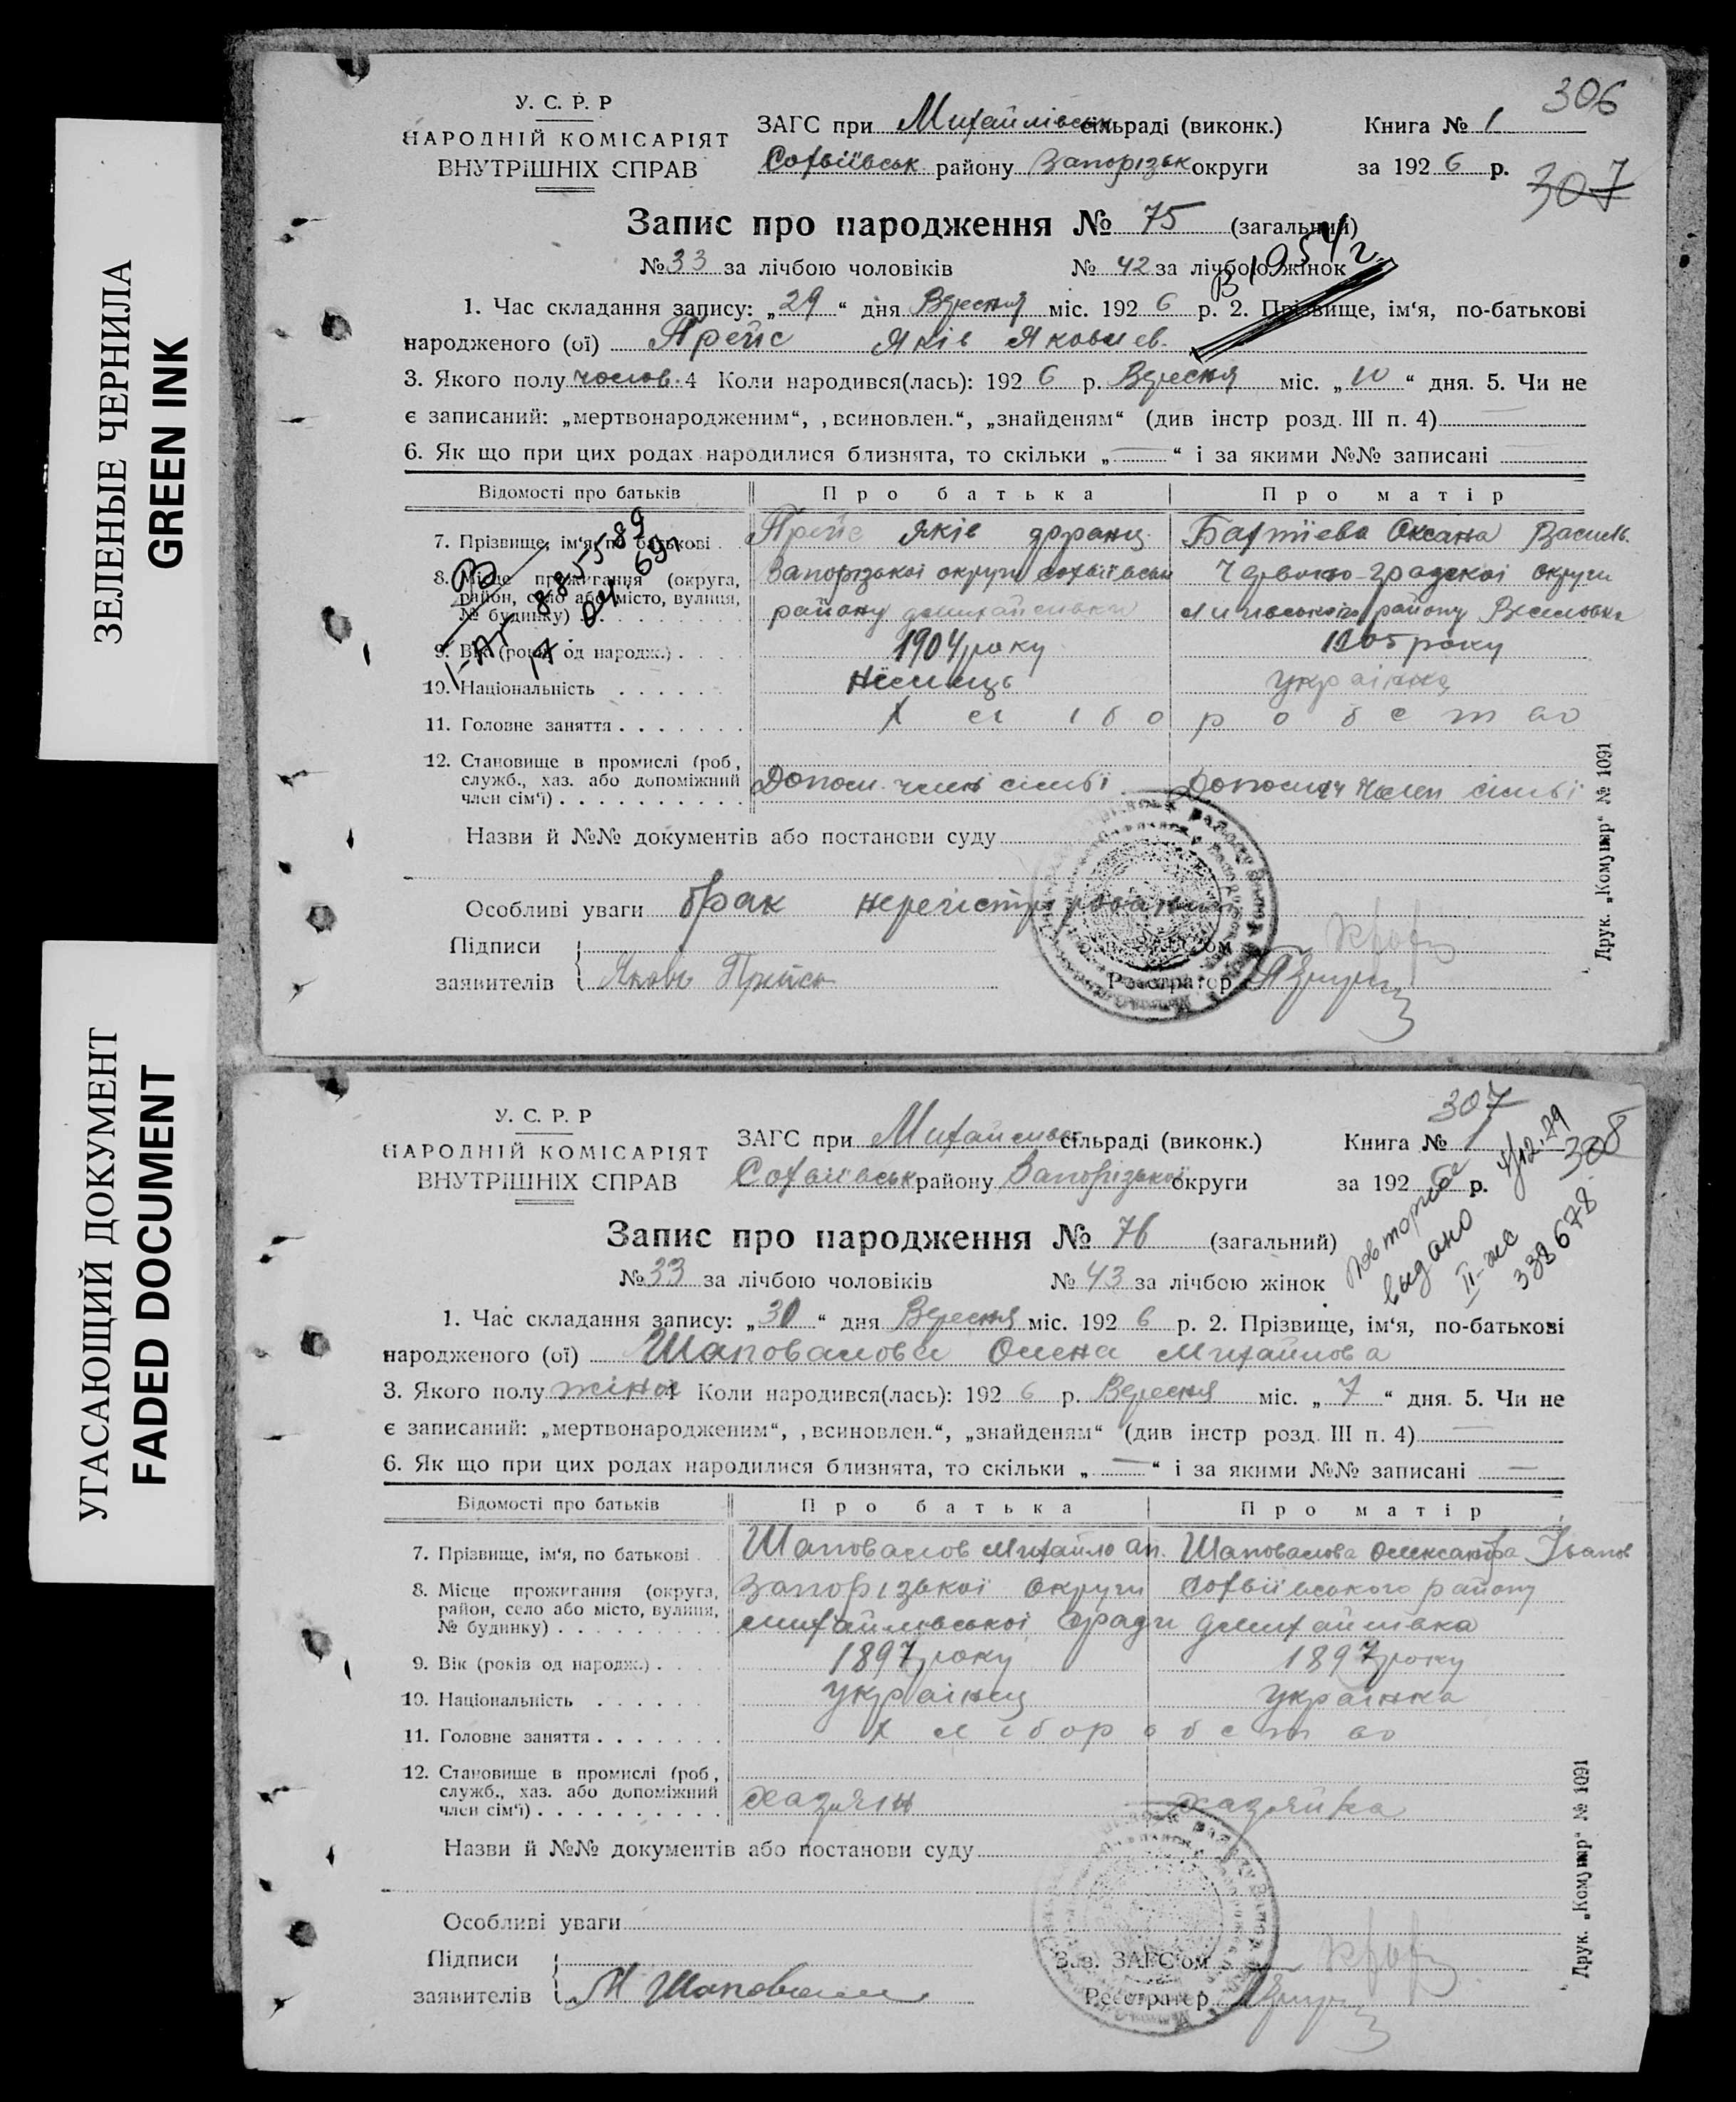 ЗЕЛЕНЫЕ ЧЕРНИЛА
GREEN INK
УГАСАЮЩИЙ ДОКУМЕНТ
FADED DOCUMENT
306
307
У. С. Р. Р
НАРОДНІЙ КОМІСАРІЯТ
ВНУТРІШНІХ СПРАВ
ЗАГС при Михайлівськ сільраді (виконк.) Книга № 1
Софіївськ району Запорізьк округи за 192 6 р.
Запис про народження № 75 (загальний)
№ 33 за лічбою чоловіків № 42 за лічбою жінок
В 1954 г.
1. Час складання запису: „ 29 “ дня Вересня міс. 192 6 р. 2. Прізвище, ім‘я, по-батькові
народженого (ої) Прейс Яків Яковлев.
3. Якого полу чолов. 4 Коли народився(лась): 192 6 р. Вересня міс. „ 10 “ дня. 5. Чи не
є записаний: „мертвонародженим“, ‚всиновлен.“, „знайденям“ (див інстр розд. III п. 4)
6. Як що при цих родах народилися близнята, то скільки „ — “ і за якими №№ записані
Відомості про батьків Про батька Про матір
7. Прізвище, ім‘я, по батькові Прейс Яків Франц. Оксана Василь.
8. Місце прожигання (округа, Запорізької округи Софіївськ округи
район, село або місто, вулиця, району району
№ будинку)
9. Вік (років од народж.) 1904 року 1905 року
10. Національність Німець українка
11. Головне заняття Хліборобство
12. Становище в промислі (роб,
служб., хаз. або допоміжний Допом. член сімьї Допомоч член сімьї
член сім‘ї)
Назви й №№ документів або постанови суду
Особливі уваги брак нерегістрірований
Підписи
заявителів Яковъ Прейсъ Реєстратор
Друк. „Комунар“ № 1091
307
308
У. С. Р. Р
НАРОДНІЙ КОМІСАРІЯТ
ВНУТРІШНІХ СПРАВ
ЗАГС при Михайлівськ сільраді (виконк.) Книга № 1
Софіївськ району Запорізької округи за 192 6 р.
повторное
выдано
4/12.29
II-жс
338678
Запис про народження № 76 (загальний)
№ 33 за лічбою чоловіків № 43 за лічбою жінок
1. Час складання запису: „ 30 “ дня Вересня міс. 192 6 р. 2. Прізвище, ім‘я, по-батькові
народженого (ої) Шаповалова Олена Михайлова
3. Якого полу жіноч 4 Коли народився(лась): 192 6 р. Вересня міс. „ 7 “ дня. 5. Чи не
є записаний: „мертвонародженим“, ‚всиновлен.“, „знайденям“ (див інстр розд. III п. 4) —
6. Як що при цих родах народилися близнята, то скільки „ — “ і за якими №№ записані —
Відомості про батьків Про батька Про матір
7. Прізвище, ім‘я, по батькові Шаповалов Михайло Шаповалова Олександра Іванов
8. Місце прожигання (округа, Запорізької округи Софіївського району
район, село або місто, вулиця, Михайлівської с/ради д Михайлівка
№ будинку)
9. Вік (років од народж.) 1897 року 1897 року
10. Національність українец українка
11. Головне заняття Хліборобство
12. Становище в промислі (роб,
служб., хаз. або допоміжний хазяїн хазяйка
член сім‘ї)
Назви й №№ документів або постанови суду
Особливі уваги
Підписи Зав. ЗАГС‘ом
заявителів М Шаповалов Реєстратор
Друк. „Комунар“ № 1091